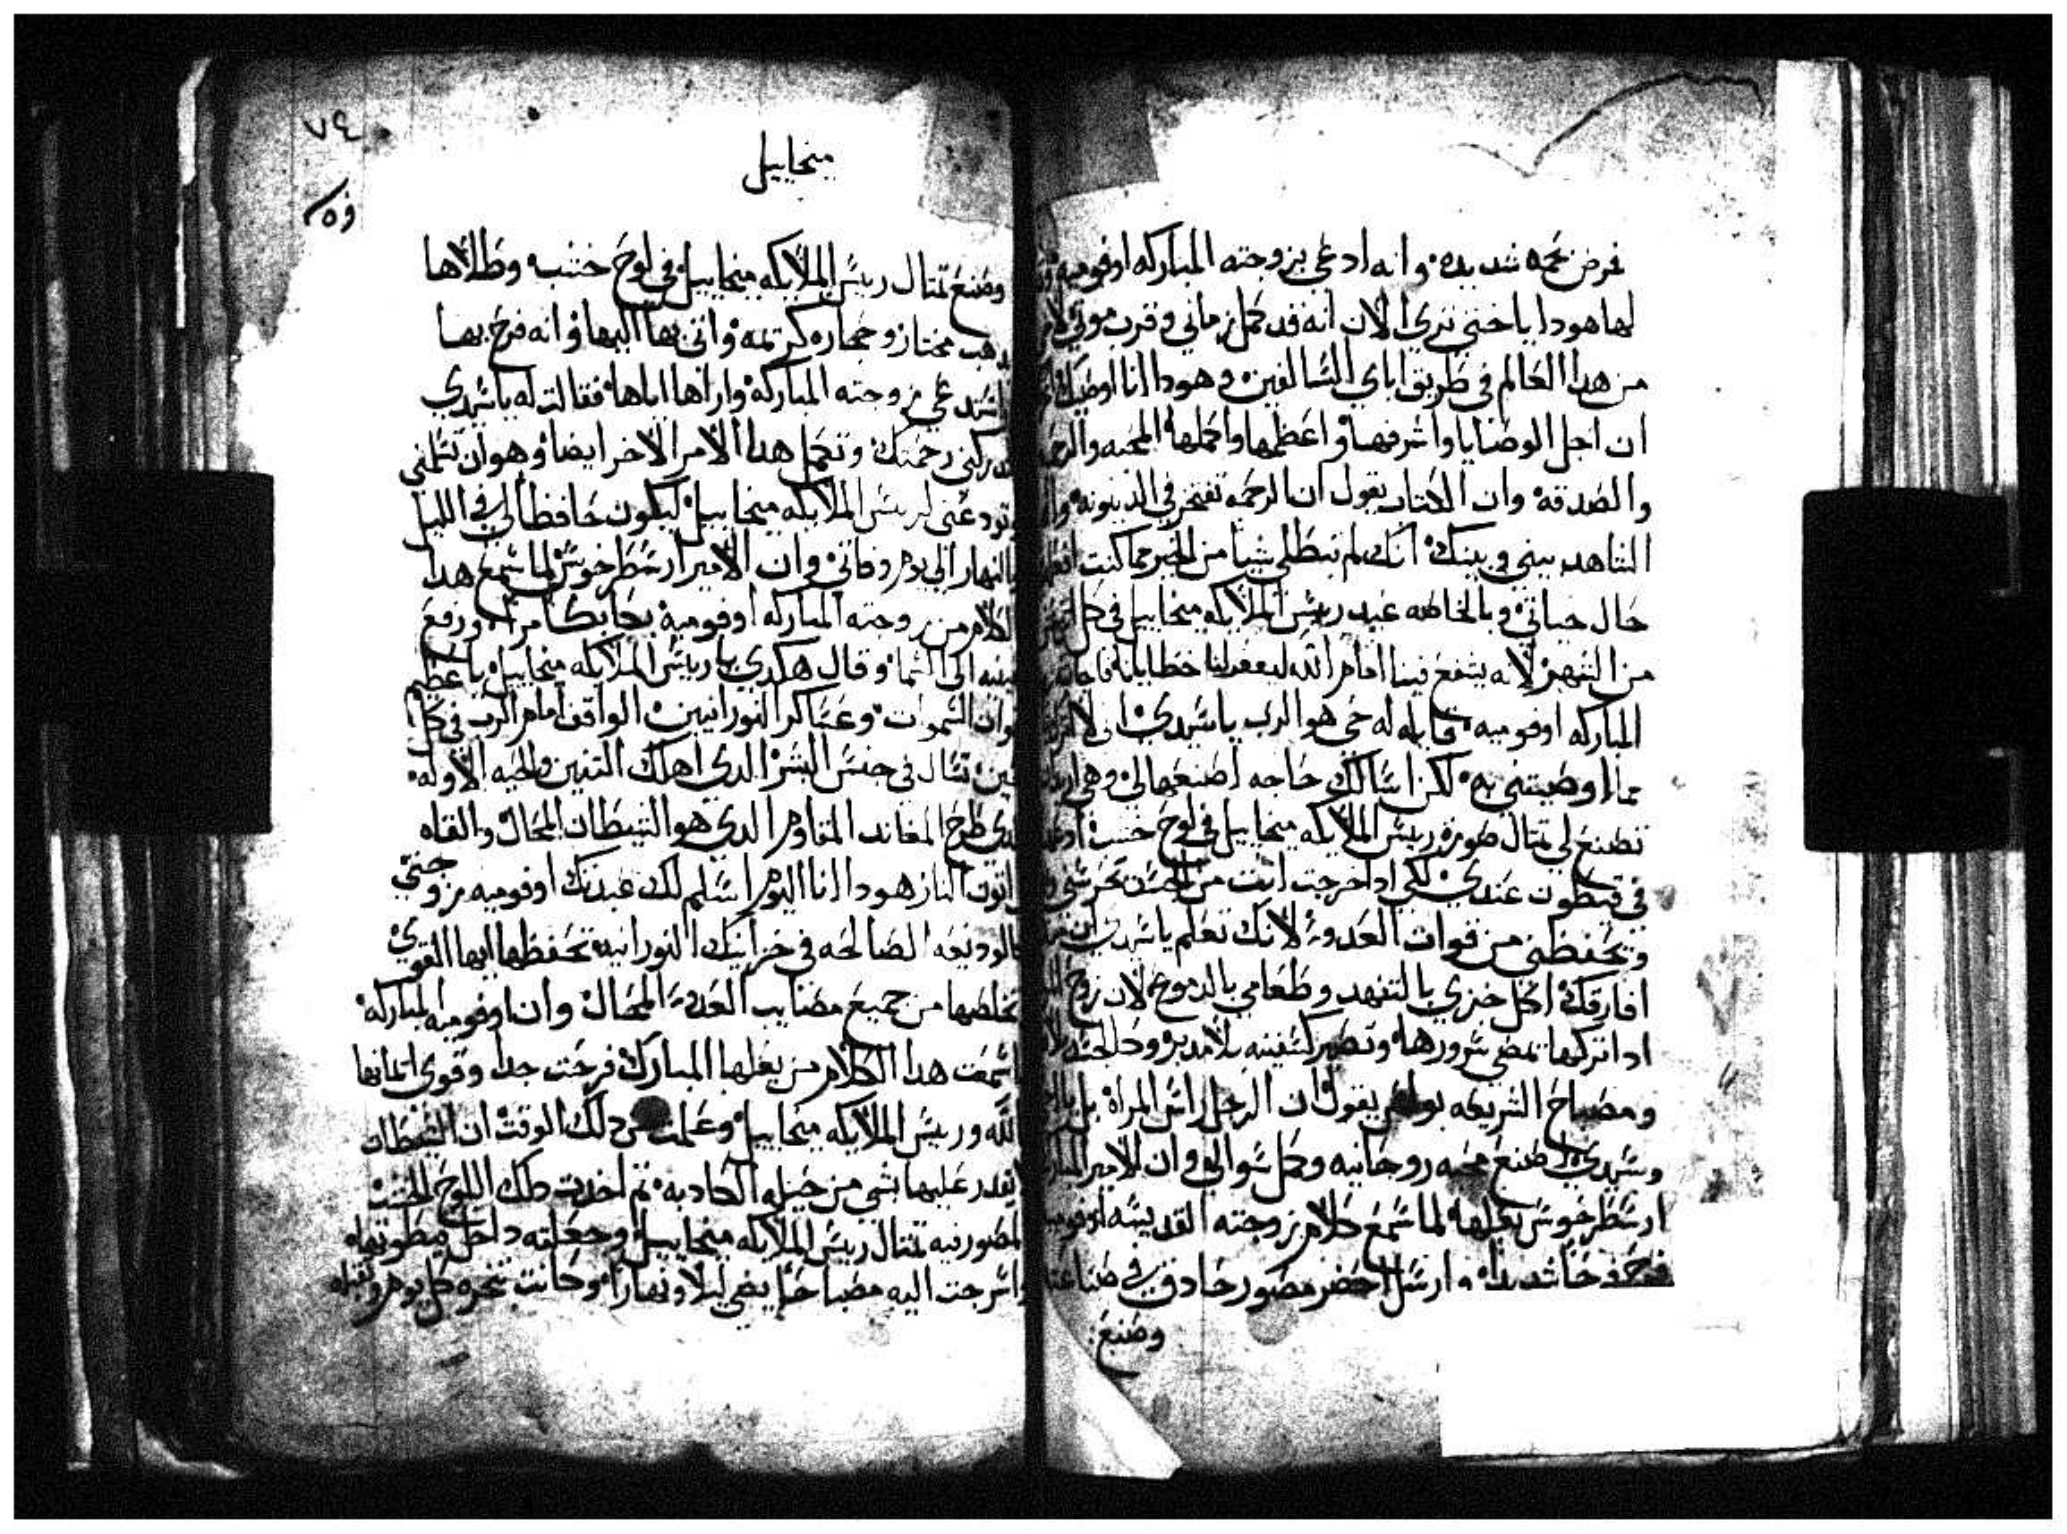 مرض بحمه شديده وانه ادعي بزوجته المباركه اوفوميه
لها هودا يا اختي تري الان انه قد كمل زماني وقرب موتي
من هدا العالم في طريق اباي السالفين وهودا انا اوصيك
ان اجل الوصايا واشرفها واعظمها واكملها المحبه والرحمه
والصدقه وان الكتاب يقول ان الرحمه تفتخر في الدينونه
الشاهد بيني وبينك انك لم تبطلي شيا من الخير مما كنت
حال حياتي وبالخاصه عيد رييس الملايكه ميخاييل في كل
من الشهر لانه يشفع فينا امام الله ليغفر لنا خطايانا
المباركه اوفوميه قايله له حي هو الرب يا سيدي اني لا
مما اوصيتني به لكن اسالك حاجه اصنعها لي وهي
تصنع لي تمتال صورة رييس الملايكه ميخاييل في لوح خشب
في قيطون عندي لكي ادا خرجت انت من الجسد تحرسني
وتحفظني من قوات العدو لانك تعلم يا سيدي ان
افارقك اكل خبزي بالتنهد وطعامي بالدموع لان زوج
ادا تركها تمضي سرورها وتصير كسفينه بلا مدبر وكالجته
ومصباح الشريعه بولس يقول ان الرجل راس المراه بل
وسيدي اصنع محبه روحانيه وكمل سوالي وان الامير
ارسطرخوس بعلها لما سمع كلام زوجته القديسه اوفوميه
فرح فرحا شديدا وارسل احضر مصور حادق في صناعته
وصنع
ميخاييل
٧٤
وصنع تمتال رييس الملايكه ميخاييل في لوح خشب وطلاها
بدهب مختار وحجاره كريمه واتى بها اليها وانه فرح بها
واستدعي زوجته المباركه واراها اياها فقالت له يا سيدي
تدركني رحمتك وتعمل هدا الامر الاخر ايضا وهو ان تسلمني
وتودعني لرييس الملايكه ميخاييل ليكون حافظا لي في الليل
والنهار الي يوم وفاتي وان الامير ارسطرخوس لما سمع هدا
الكلام من زوجته المباركه اوفوميه ورفع
عينيه الى السما وقال هكدي يا رييس الملايكه ميخاييل يا عظيم
السموات وعساكر النورانيين الواقف امام الرب في كل
حين تسال في جنس البشر الدي اهلك التنين والحيه الاوله
الدي طرح المعاند المقاوم الدي هو الشيطان المحال والقاه
اتون النار هودا انا اليوم اسلم لك عبدتك اوفوميه زوجتي
كالوديعه الصالحه في خزاينك النورانيه تحفظها ايها القوي
تخلصها من جميع مصايب العدو المحال وان اوفوميه المباركه
سمعت هدا الكلام من بعلها المبارك فرحت جدا وقوي ايمانها
الله ورييس الملايكه ميخاييل وعلمت من دلك الوقت ان الشيطان
يقدر عليها بشي من حيله الكادبه تم اخدت دلك اللوح الخشب
المصور فيه تمتال رييس الملايكه ميخاييل وجعلته داخل قيطونها
واسرجت اليه مصباحا يضي ليلا ونهارا وكانت تبخره كل يوم